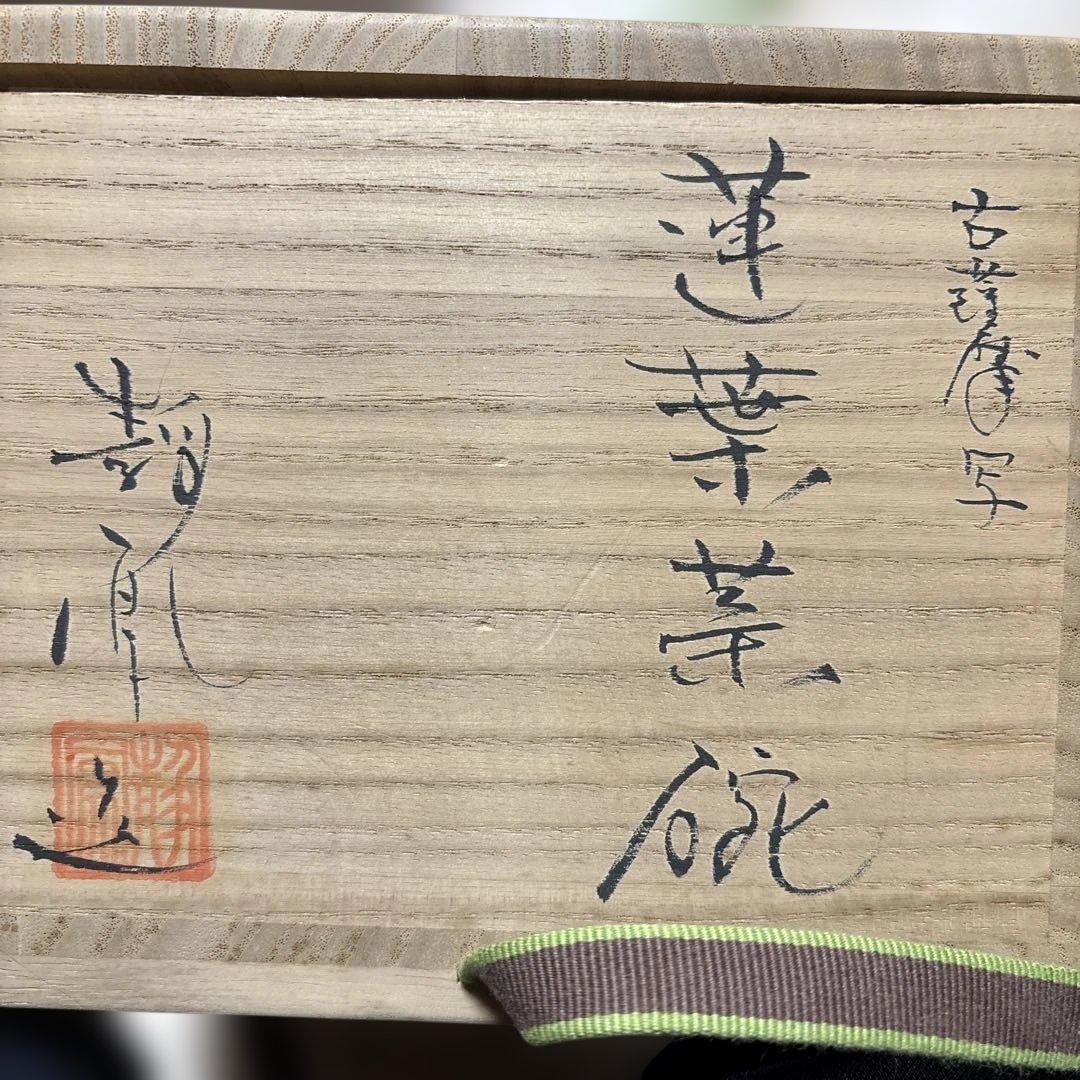 古薩摩写
蓮葉茶碗
造